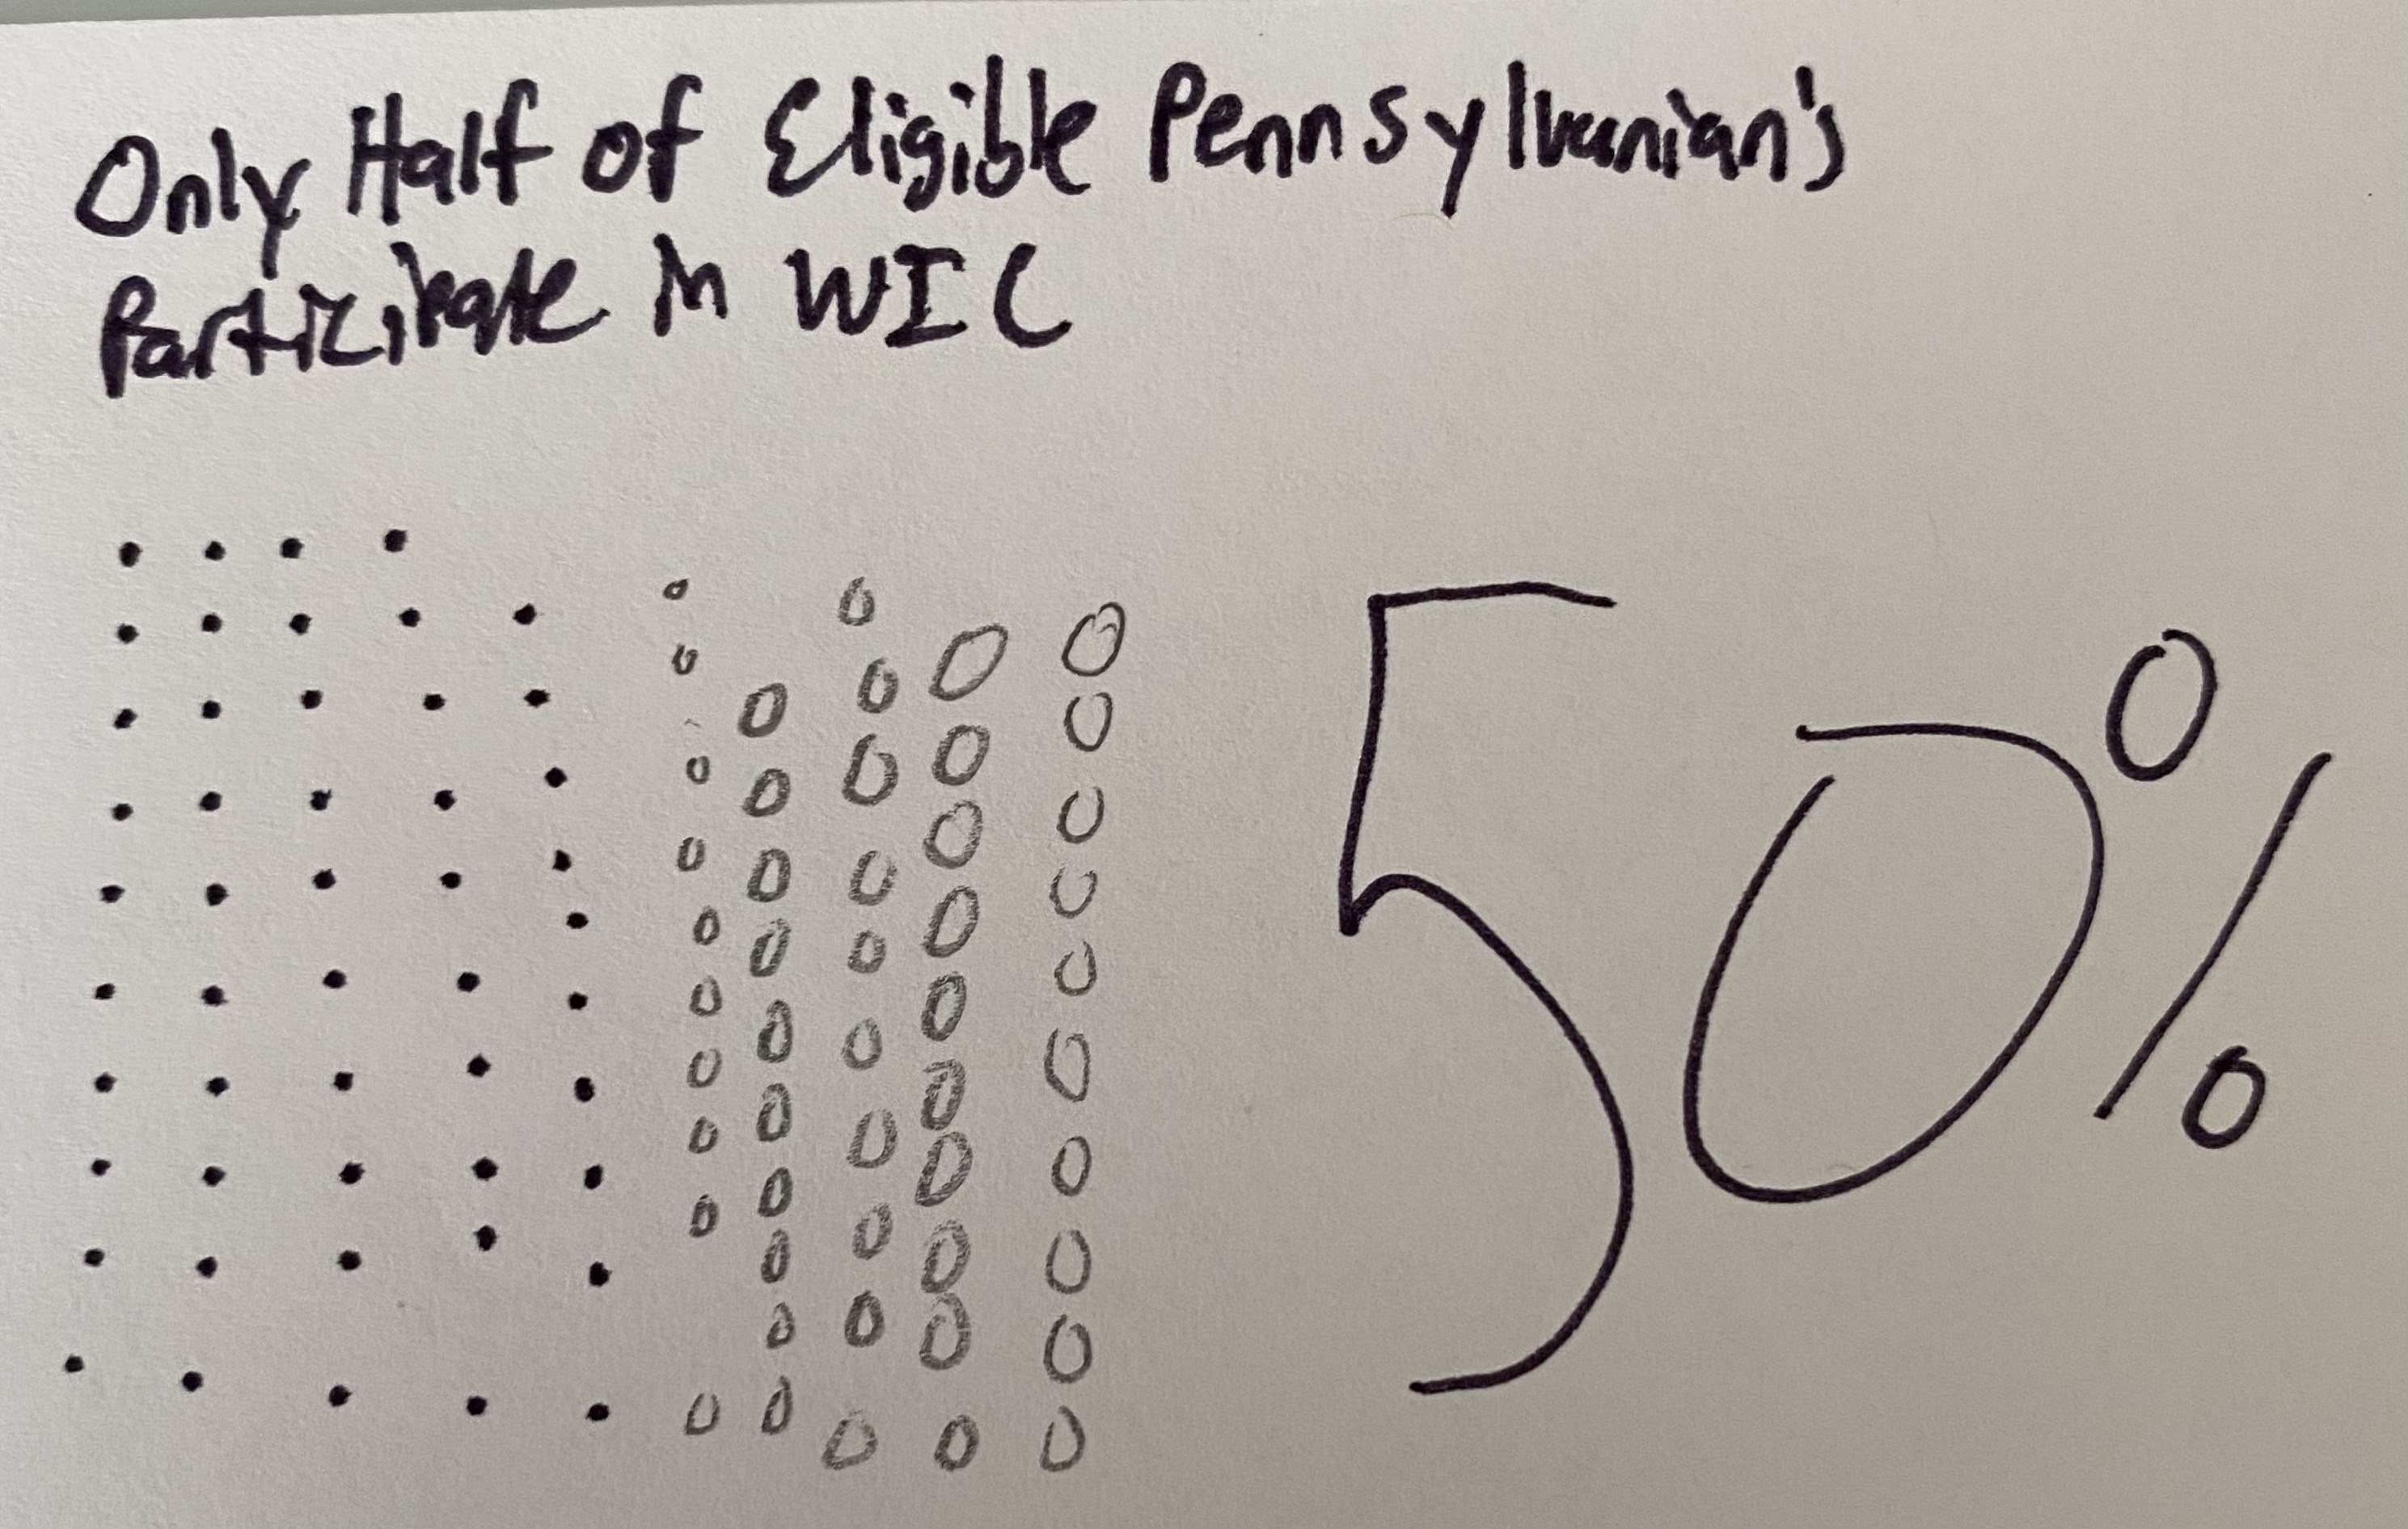 Only Half of Eligible Pennsylvanian's
Participate in WIC
50%